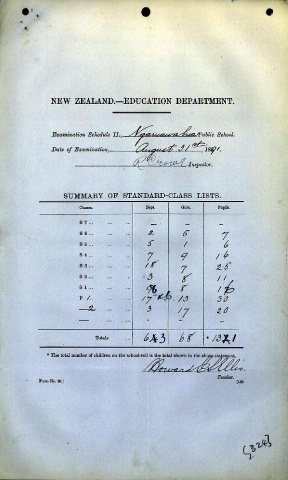 NEW ZEALAND.—EDUCATION DEPARTMENT.
Examination Schedule II., Ngaruawahia Public School.
Date of Examination, August 31st 1891.
Inspector.
SUMMARY OF STANDARD-CLASS LISTS.
Classes. Boys. Girls. Pupils.
S 7 .. — — — —
S 6 .. — 2 5 7
S 5 .. — 5 1 6
S 4 .. — 7 9 16
S 3 .. — 18 7 25
S 2 .. — 3 8 11
S 1 .. — 8
P 1. 17 13 30
— 2 3 17 20
Totals 63 68 131
* The total number of children on the school-roll is the total shown in the above statement.
Howard Ellis.
Teacher.
Form No. 20.]
[328]